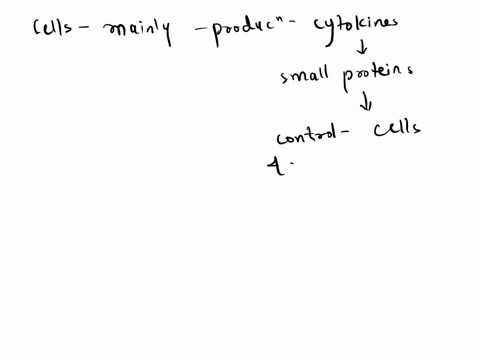 cells - mainly - producⁿ - cytokines
↓
small proteins
↓
control - cells
&